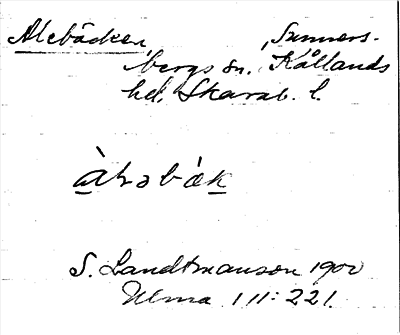 Alebäcken, Sunners-
bergs sn. Kållands
hd, Skarab. l.
àləbäk
S. Landtmanson 1900
Ulma 111:221.